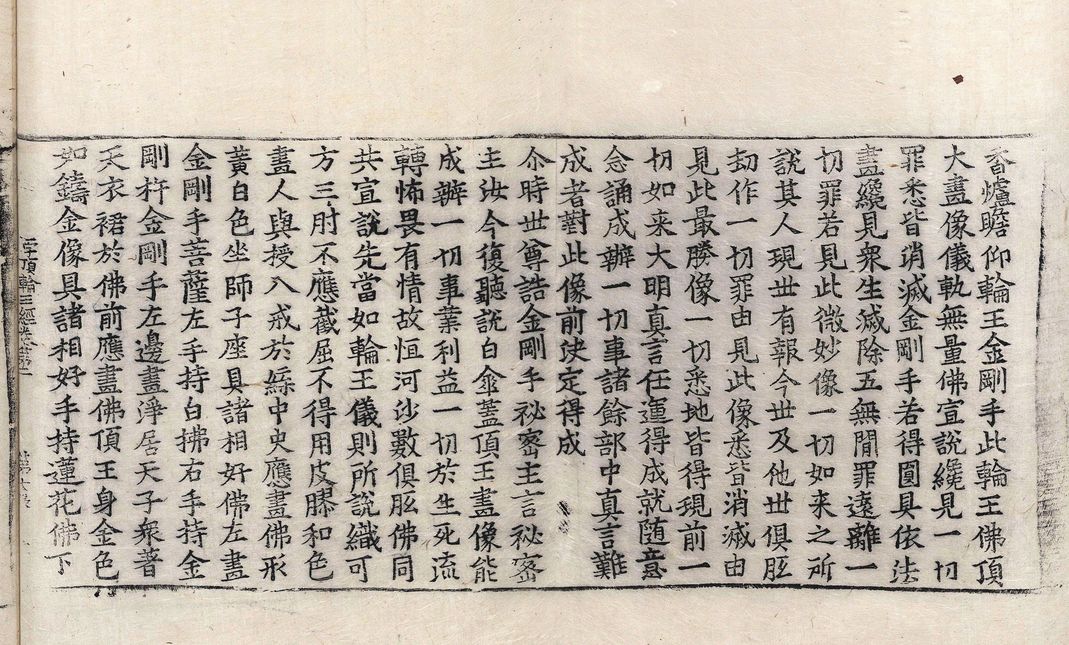 香爐瞻仰輪王金剛手此輪王佛頂
大畫像儀軌無量佛宣說纔見一切
罪悉皆消滅金剛手若得圓具依法
畫纔見衆生滅除五無間罪遠離一
切罪若見此微妙像一切如來之所
說其人現世有報今世及他世俱胝
劫作一切罪由見此像悉皆消滅由
見此最勝像一切悉地皆得現前一
切如来大明真言任運得成就随意
念誦成辦一切事諸餘部中真言難
成者對此像前決定得成
尒時世尊誥金剛手祕密主言祕密
主汝今復聽說白傘蓋頂王畫像能
成辦一切事業利益一切於生死流
轉怖畏有情故恒河沙數俱胝佛同
共宣說先當如輪王儀則所說織可
方三肘不應截屈不得用皮膠和色
畫人與授八戒於緤中央應畫佛形
黃白色坐師子座具諸相好佛左畫
金剛手菩薩左手持白拂右手持金
剛杵金剛手左邊畫淨居天子衆著
天衣裙於佛前應畫佛頂王身金色
如鑄金像具諸相好手持蓮花佛下
字頂輪王經卷第二